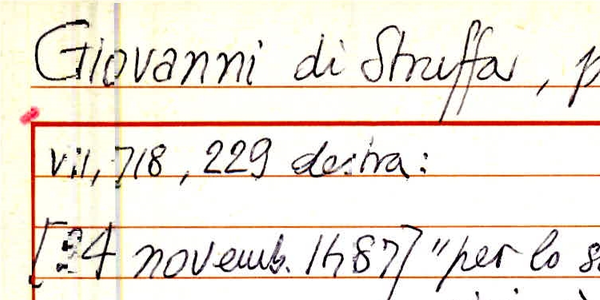 Giovanni di Struffa, p
vii, 718, 229 destra:
[24 novemb. 1487] "per lo s